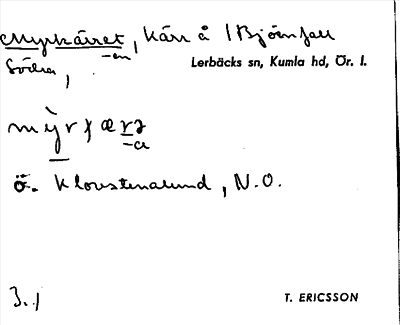 Myrkärret, Kärr å 1 Björnfall
-en
Södra,
Lerbäcks sn, Kumla hd, Ör. l.
-a
Ö. Klovstenalund, N.O.
3.1
T. ERICSSON